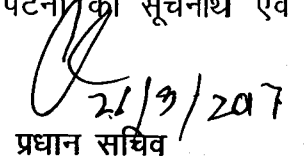 पटना को सूचनार्थ एवं
21/9/2017
प्रधान सचिव